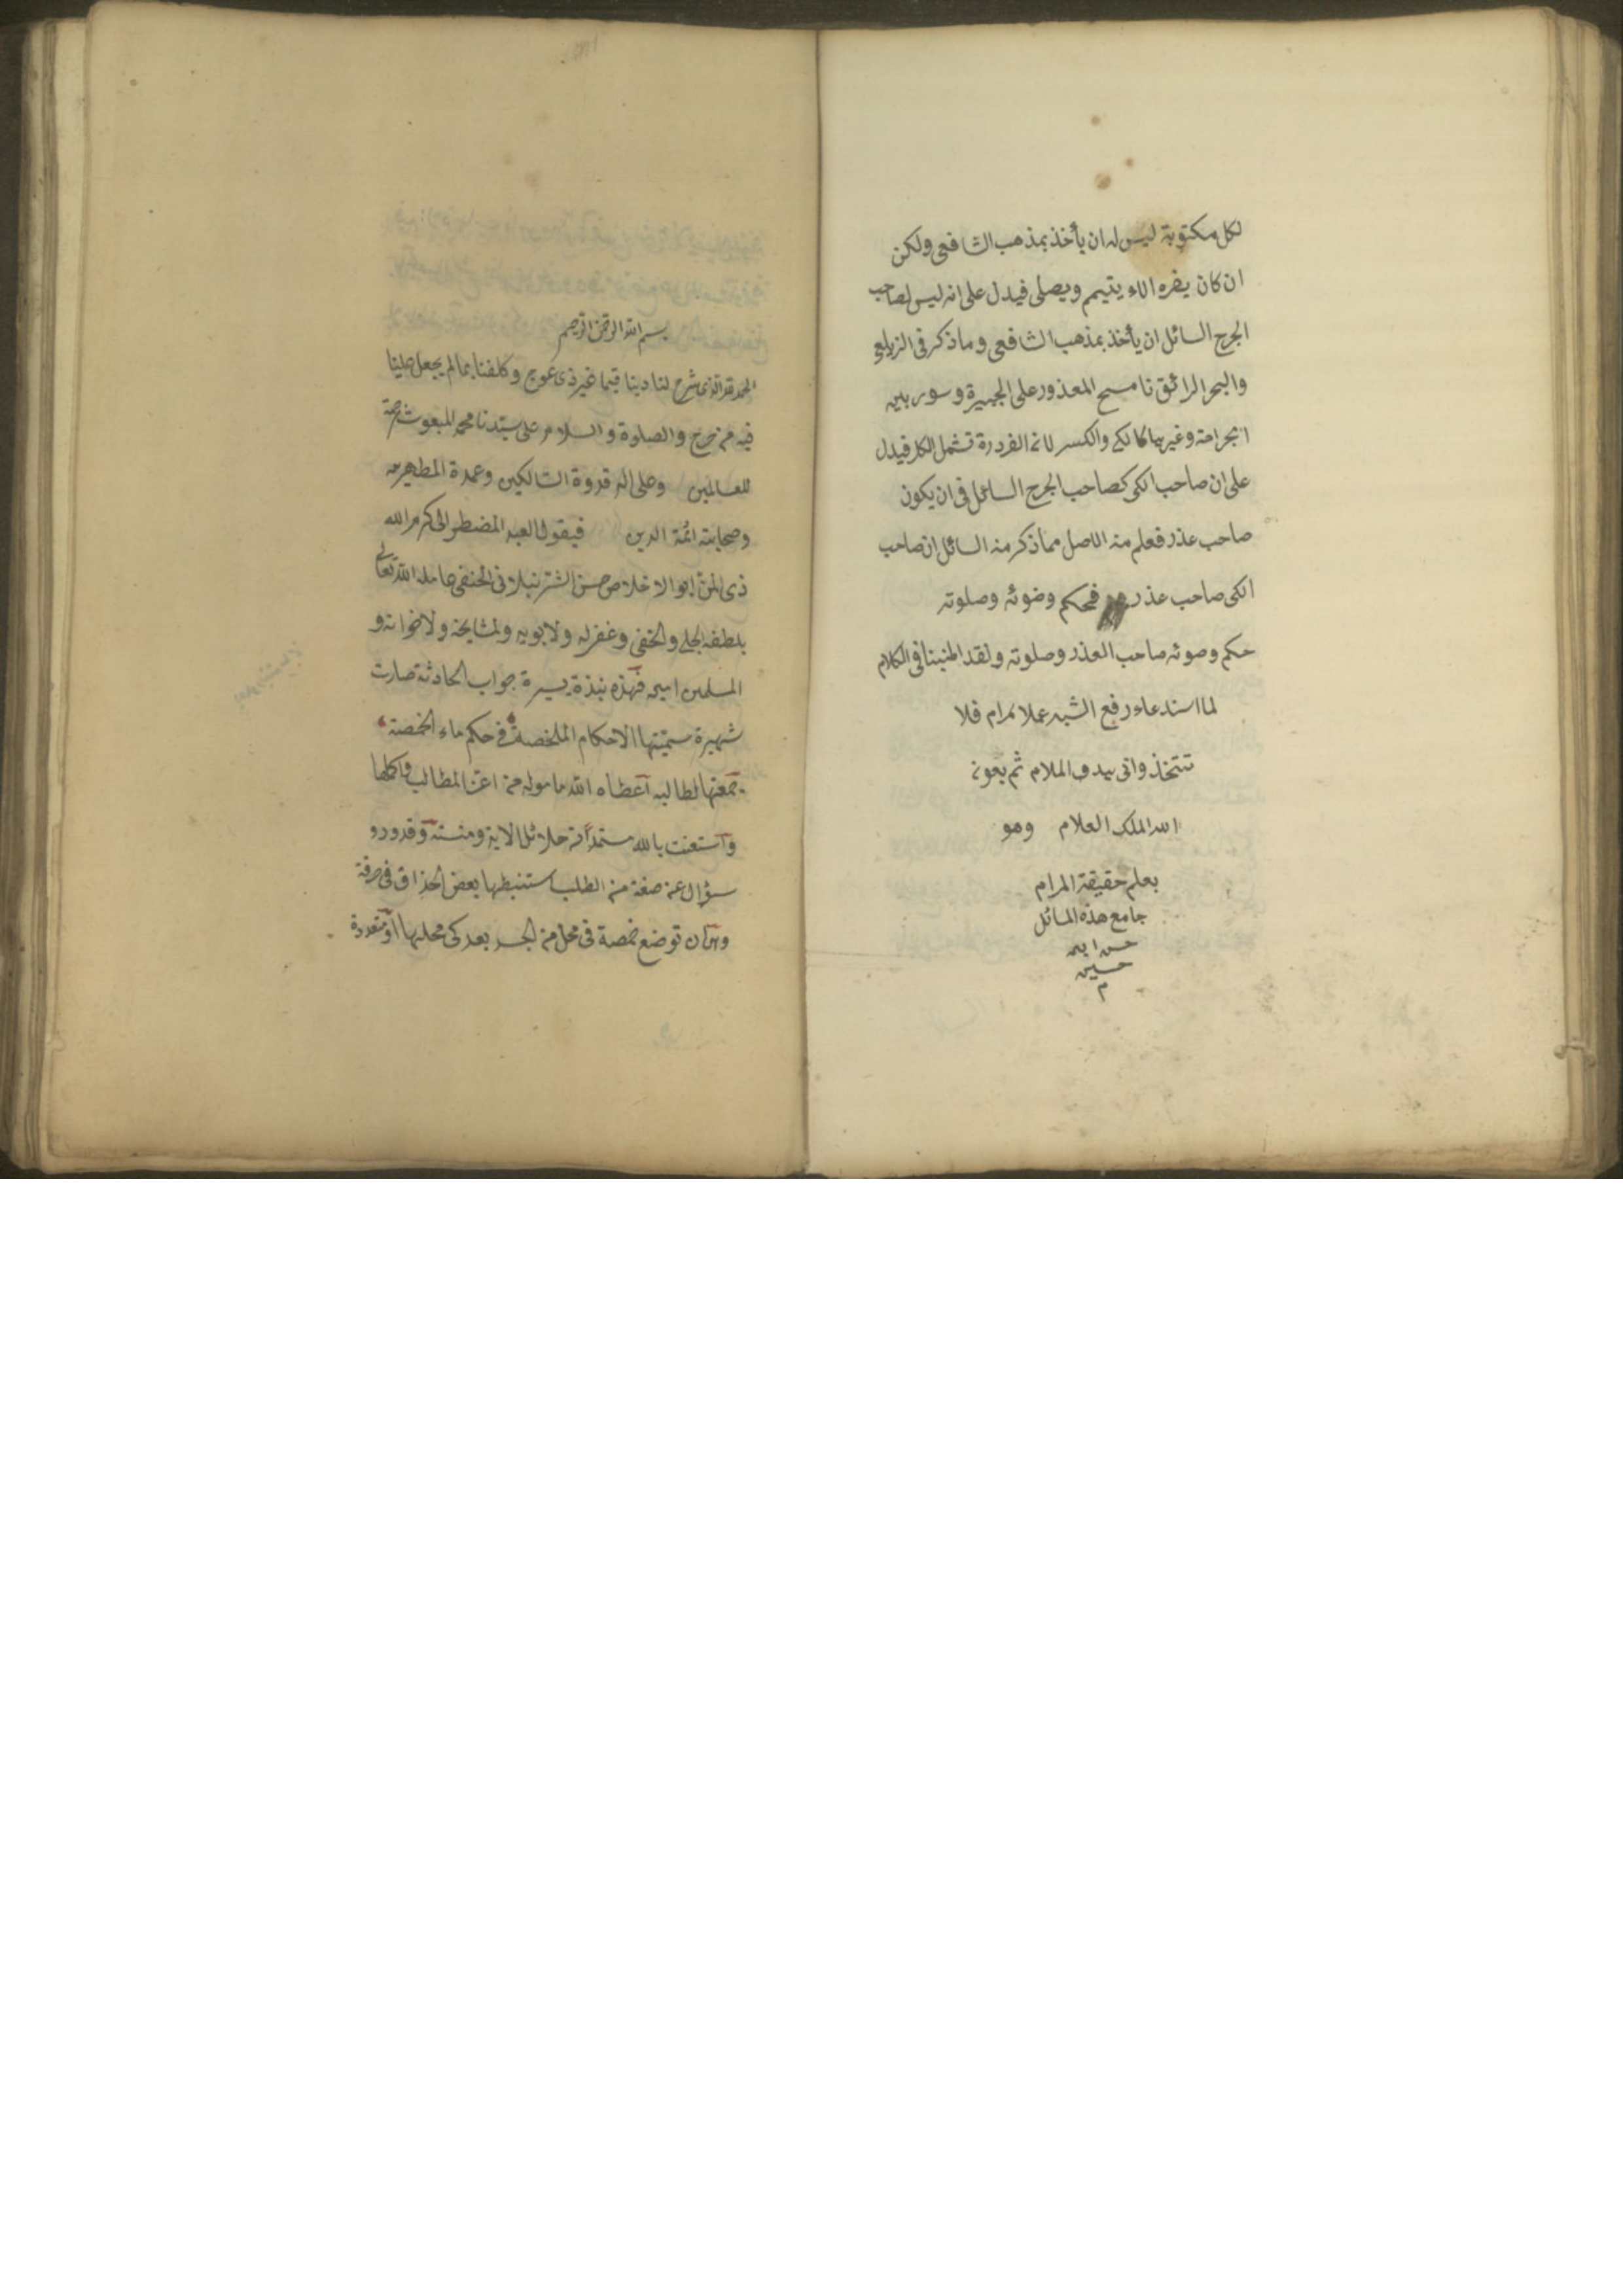 لكل مكتوبة ليس له ان يأخذ بمذهب الشافعى ولكن
ان كان يضره الماء يتيمم ويصلى فيدل على انه ليس لصاحب
الجرح السائل ان يأخذ بمذهب الشافعى وما ذكر فى الزيلعى
والبحر الرائق نا مسح المعذور على الجبيرة وسوى بين
الجراحة وغيرها كالكى والكسر لانه الضرورة تشمل الكل فيدل
على ان صاحب الكى كصاحب الجرح السائل فى ان يكون
صاحب عذر فعلم منه الاصل مما ذكر منه السائل ان صاحب
الكى صاحب عذر فحكم وضوئه وصلوته
حكم وضوئه صاحب العذر وصلوته ولقد اطنبنا فى الكلام
لما استدعاء رفع الشبه عملا بمرام فلا
تتخذوانى بهدف الملام ثم بعونه
الله الملك العلام وهو
يعلم حقيقة المرام
جامع هذه المسائل
حسن ابن
حسين
م
بسم الله الرحمن الرحيم
الحمد لله الذى شرح لنا دينا قيما غير ذى عوج وكلفنا بما لم يجعل علينا
فيه من حرج والصلوة والسلام على سيدنا محمد المبعوث رحمة
للعالمين وعلى اله قدوة السالكين وعمدة المطهرين
وصحابته ائمة الدين فيقول العبد المضطر الى كرم الله
ذى المن ابو الاخلاص حسن الشرنبلانى الحنفى عامله الله تعالى
بلطفه الجلى والخفى وغفر له ولابويه ولمشايخه ولاخوانه و
المسلمين امين فهذه نبذة يسيرة جواب الحادثة صارت
شهيرة سميتها الاحكام الملخصة فى حكم ماء الحمصة
جمعتها لطالبه اعطاه الله ماموله من اعز المطالب واكملها
واستعنت بالله مستمدا من جلائل الايه ومنته وقد ورد
سؤال عن صفة من الطلب استنبطها بعض الحذاق فى حرفة
وهى ان توضع حمصة فى محل من الجسد بعد كى محلها او متعددة